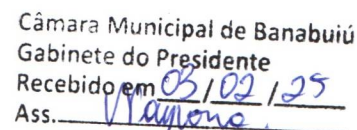 Câmara Municipal de Banabuiú
Gabinete do Presidente
Recebido em 03/02/25
Ass.